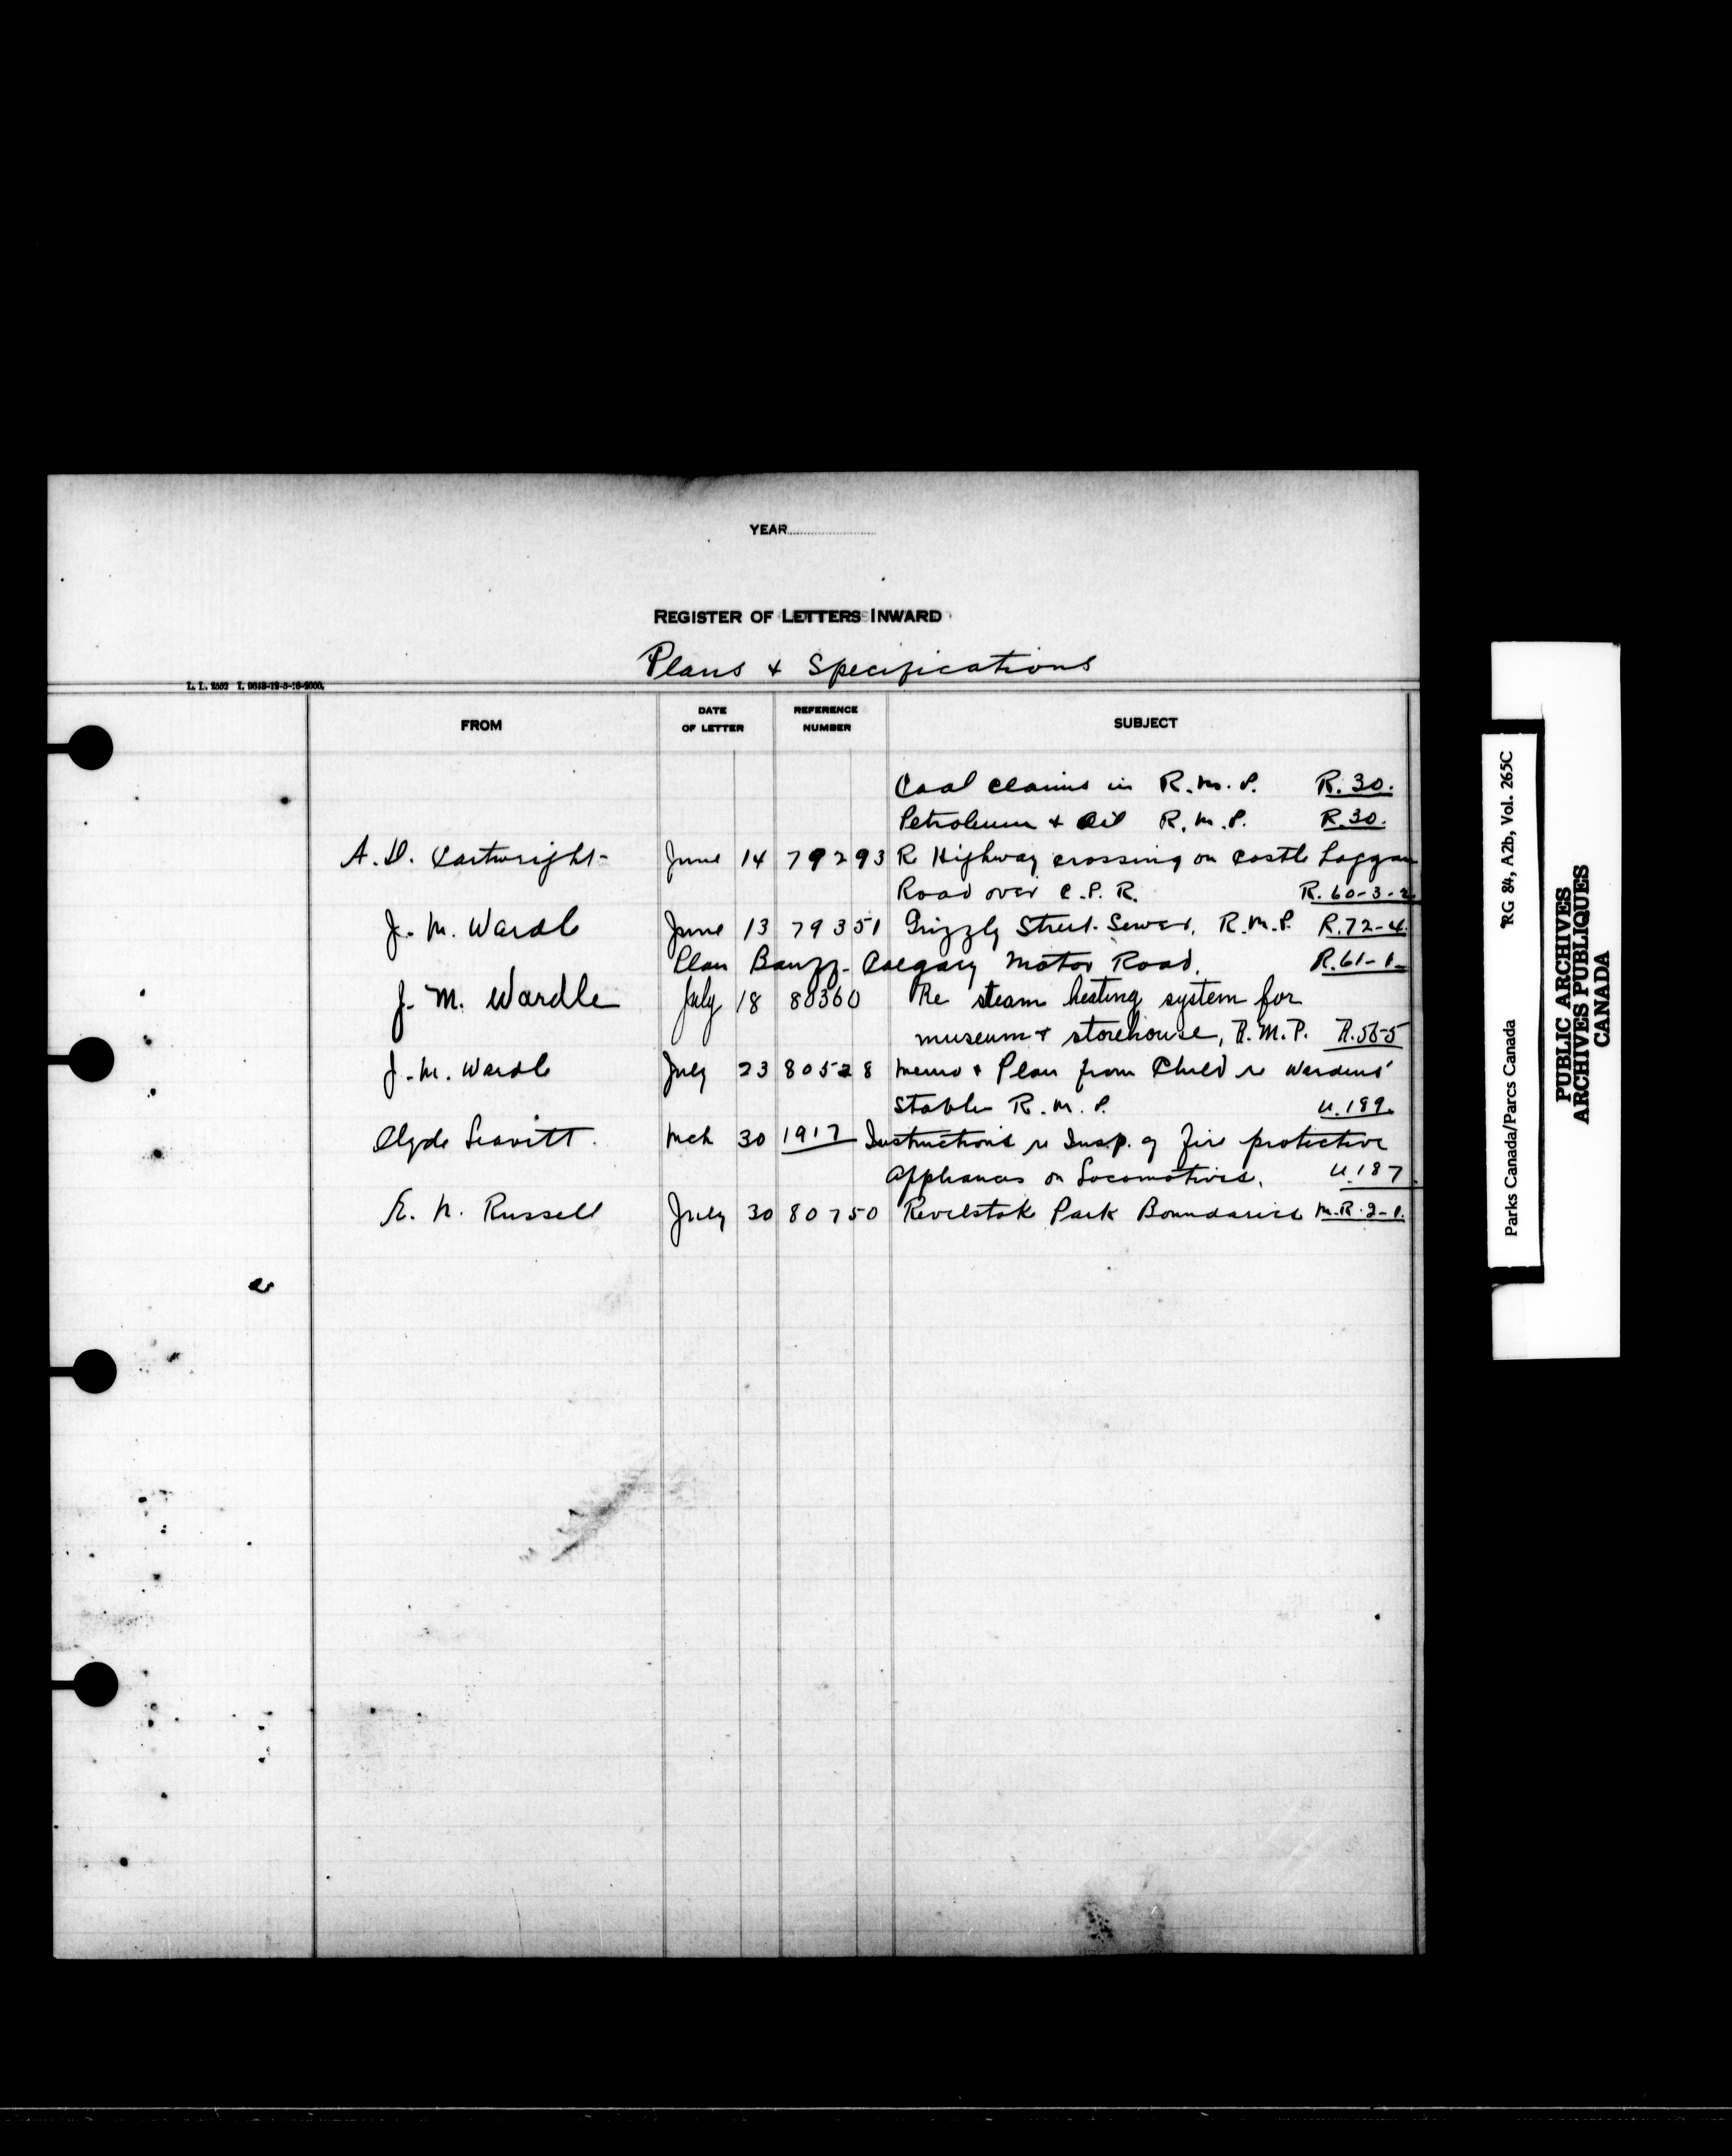 YEAR
REGISTER OF LETTERS INWARD
Plans & Specifications
L. L. 2552
FROM DATE OF LETTER REFERENCE NUMBER SUBJECT
Coal claims in R.M.P. R.30.
Petroleum & Oil R.M.P. R.30.
A.D. Cartwright June 14 79293 Re Highway crossing on Castle Laggan
Road over C.P.R. R.60-3-2
J.M. Wardle June 13 79351 Grizzly Street Sewer, R.M.P. R.72-4
Plan Banff-Calgary Motor Road. R.61-1-
J.M. Wardle July 18 80360 Re steam heating system for
museum & storehouse, R.M.P. R.56-5
J.M. Wardle July 23 80528 Memo & Plan from Child re Wardens'
Stable R.M.P. U.189.
Clyde Leavitt. Mch 30 1917 Instructions re Insp. of fire protective
Appliances on Locomotives. U.187
E. N. Russell July 30 80750 Revelstoke Park Boundaries M.R.2-1.
Parks Canada/Parcs Canada RG 84, A2b, Vol. 265C
PUBLIC ARCHIVES
ARCHIVES PUBLIQUES
CANADA